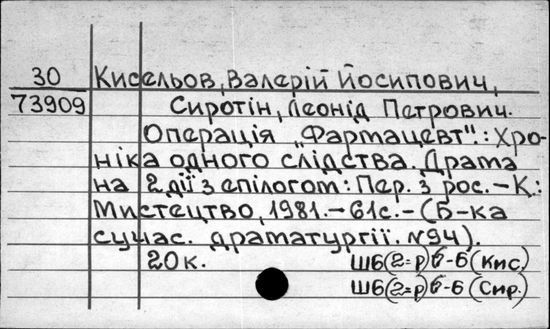 30 Кисельов, Валерій Йосипович,
73909 Сиротін, Леонід Петрович.
Операція „Фармацевт": Хро-
ніка одного слідства. Драма
на 2 дії з епілогом: Пер. з рос. – К.:
Мистецтво, 1981. – 61с. – (Б-ка
сучас. драматургії. №94).
20к. Ш6(2=Р)6-6 (Кис.)
Ш6(2=Р)6-6 (Сир.)